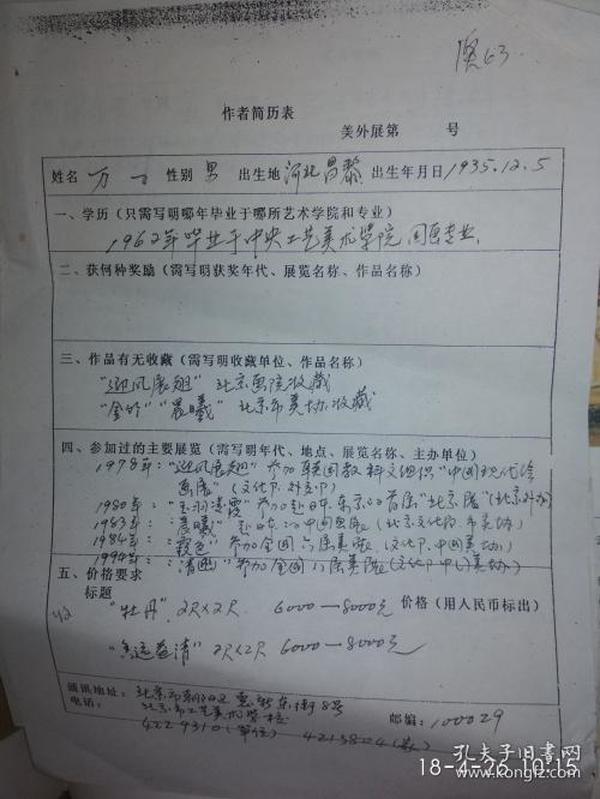 澳63
作者简历表
美外展第 号
姓名 万一 性别 男 出生地 河北昌黎 出生年月日 1935.12.5
一、学历（只需写明哪年毕业于哪所艺术学院和专业）
1962年毕业于中央工艺美术学院国画专业
二、获何种奖励（需写明获奖年代、展览名称、作品名称）
三、作品有无收藏（需写明收藏单位、作品名称）
"迎风展翅" 北京画院收藏
"金竹""晨曦" 北京市美协收藏
四、参加过的主要展览（需写明年代、地点、展览名称、主办单位）
1978年："迎风展翅"参加联国教科文组织"中国现代绘
画展"（文化部、外交部）
1980年："玉羽凌霞"参加赴日本东京的首届"北京展"（北京外办）
1983年："晨曦" 赴日本的中国画展（北京文化局、市美协）
1984年："霞色"参加全国六届美展（文化部、中国美协）
1994年："清幽"参加全国八届美展（文化部中国美协）
五、价格要求
标题 价格（用人民币标出）
42 "牡丹" 2尺×2尺 6000—8000元
"香远益清" 2尺×2尺 6000—8000元
通讯地址： 北京市朝阳区惠新东街8号
电话： 北京市工艺美术学校 邮编：100029
4229310（单位） 4213804（家）
孔夫子旧书网
www.kongfz.com
18-4-26 10:15